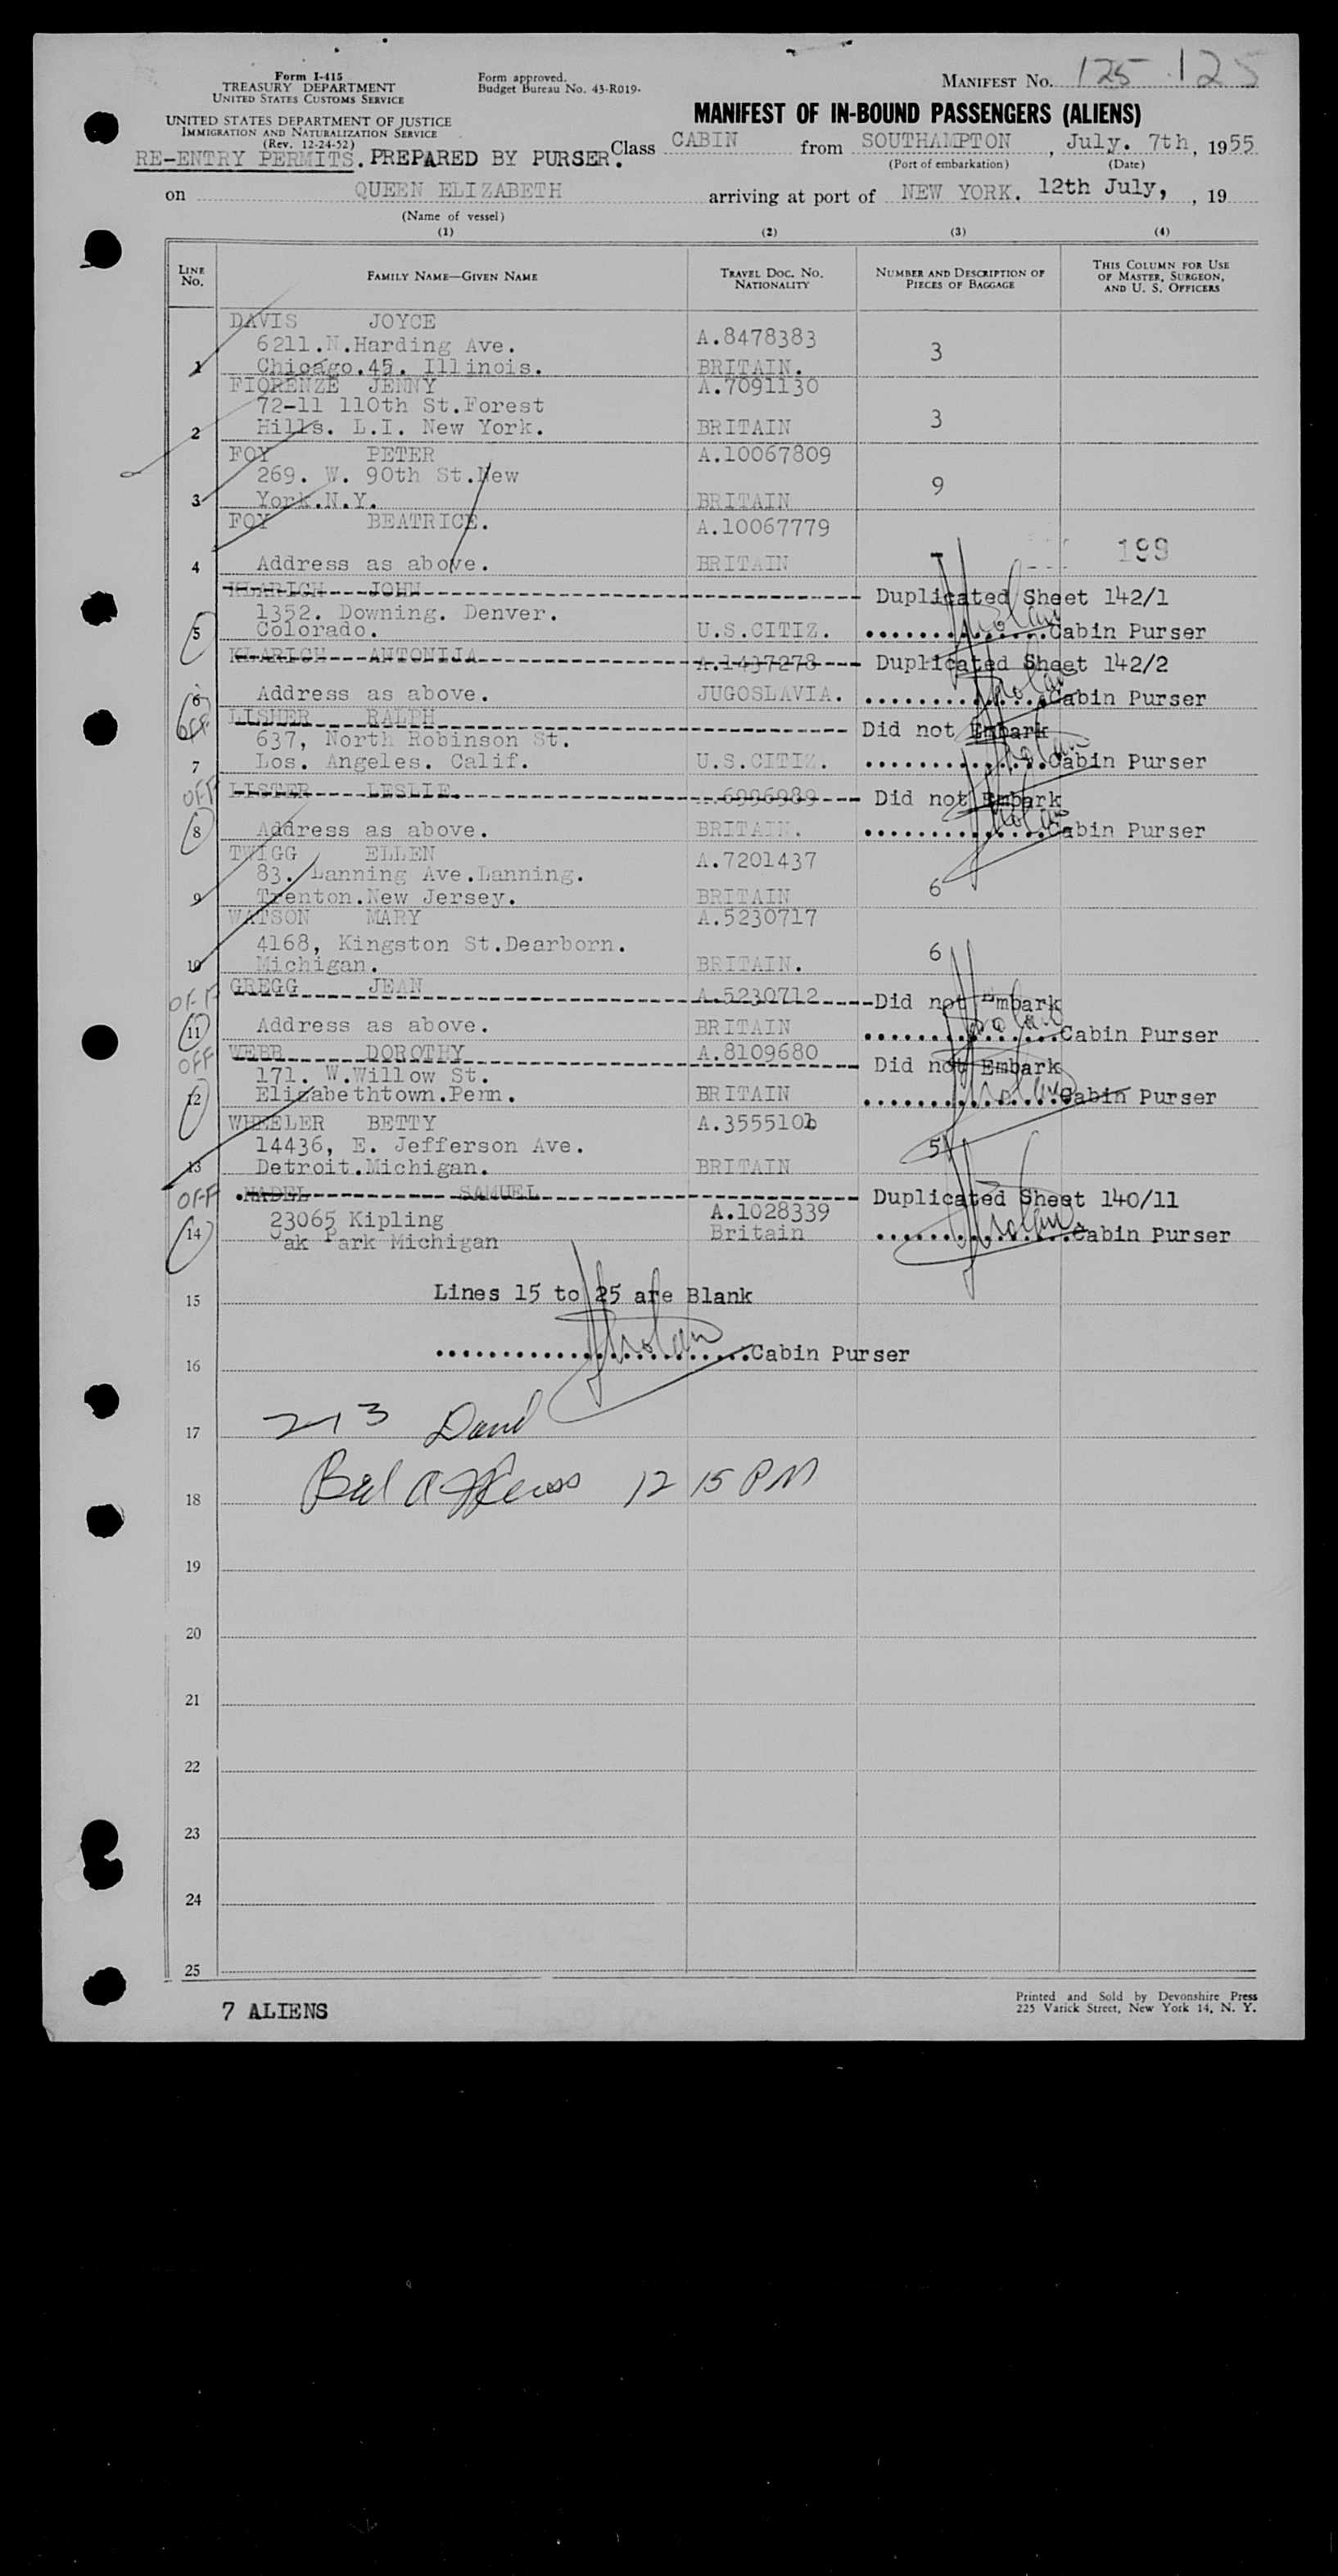 Form I-415
TREASURY DEPARTMENT
UNITED STATES CUSTOMS SERVICE
Form approved.
Budget Bureau No. 43-R019-
MANIFEST No. 125 125
UNITED STATES DEPARTMENT OF JUSTICE
IMMIGRATION AND NATURALIZATION SERVICE
(Rev. 12-24-52)
MANIFEST OF IN-BOUND PASSENGERS (ALIENS)
RE-ENTRY PERMITS. PREPARED BY PURSER. Class CABIN from SOUTHAMPTON, July. 7th, 1955
(Port of embarkation) (Date)
on QUEEN ELIZABETH arriving at port of NEW YORK. 12th July, , 19
(Name of vessel)
(1) (2) (3) (4)
LINE No. FAMILY NAME—GIVEN NAME TRAVEL DOC. NO. NATIONALITY NUMBER AND DESCRIPTION OF PIECES OF BAGGAGE THIS COLUMN FOR USE OF MASTER, SURGEON, AND U. S. OFFICERS
DAVIS JOYCE
6211.N.Harding Ave. A.8478383 3
1 Chicago.45. Illinois. BRITAIN.
FIORENZE JENNY A.7091130
72-11 110th St.Forest
2 Hills. L.I. New York. BRITAIN 3
FOY PETER A.10067809
269. W. 90th St.New 9
3 York.N.Y. BRITAIN
FOY BEATRICE. A.10067779
199
4 Address as above. BRITAIN
KLARICH JOHN Duplicated Sheet 142/1
1352. Downing. Denver.
5 Colorado. U.S.CITIZ. Cabin Purser
KLARICH ANTONIJA A.1437278 Duplicated Sheet 142/2
6 Address as above. JUGOSLAVIA. Cabin Purser
OFF LISHER RALPH Did not Embark
637, North Robinson St.
7 Los. Angeles. Calif. U.S.CITIZ. Cabin Purser
OFF LISTER LESLIE. A.6996989 Did not Embark
8 Address as above. BRITAIN. Cabin Purser
TWIGG ELLEN A.7201437
83. Lanning Ave.Lanning. 6
9 Trenton.New Jersey. BRITAIN
WATSON MARY A.5230717
4168, Kingston St.Dearborn. 6
10 Michigan. BRITAIN.
OFF GREGG JEAN A.5230712 Did not Embark
11 Address as above. BRITAIN Cabin Purser
OFF WEBB DOROTHY A.8109680 Did not Embark
171. W.Willow St.
12 Elizabethtown.Penn. BRITAIN Cabin Purser
WHEELER BETTY A.3555101
14436, E. Jefferson Ave. 5
13 Detroit.Michigan. BRITAIN
OFF NADEL SAMUEL Duplicated Sheet 140/11
23065 Kipling A.1028339
14 Oak Park Michigan Britain Cabin Purser
15 Lines 15 to 25 are Blank
16 Cabin Purser
17
18 12 15 PM
19
20
21
22
23
24
25
7 ALIENS
Printed and Sold by Devonshire Press
225 Varick Street, New York 14, N. Y.